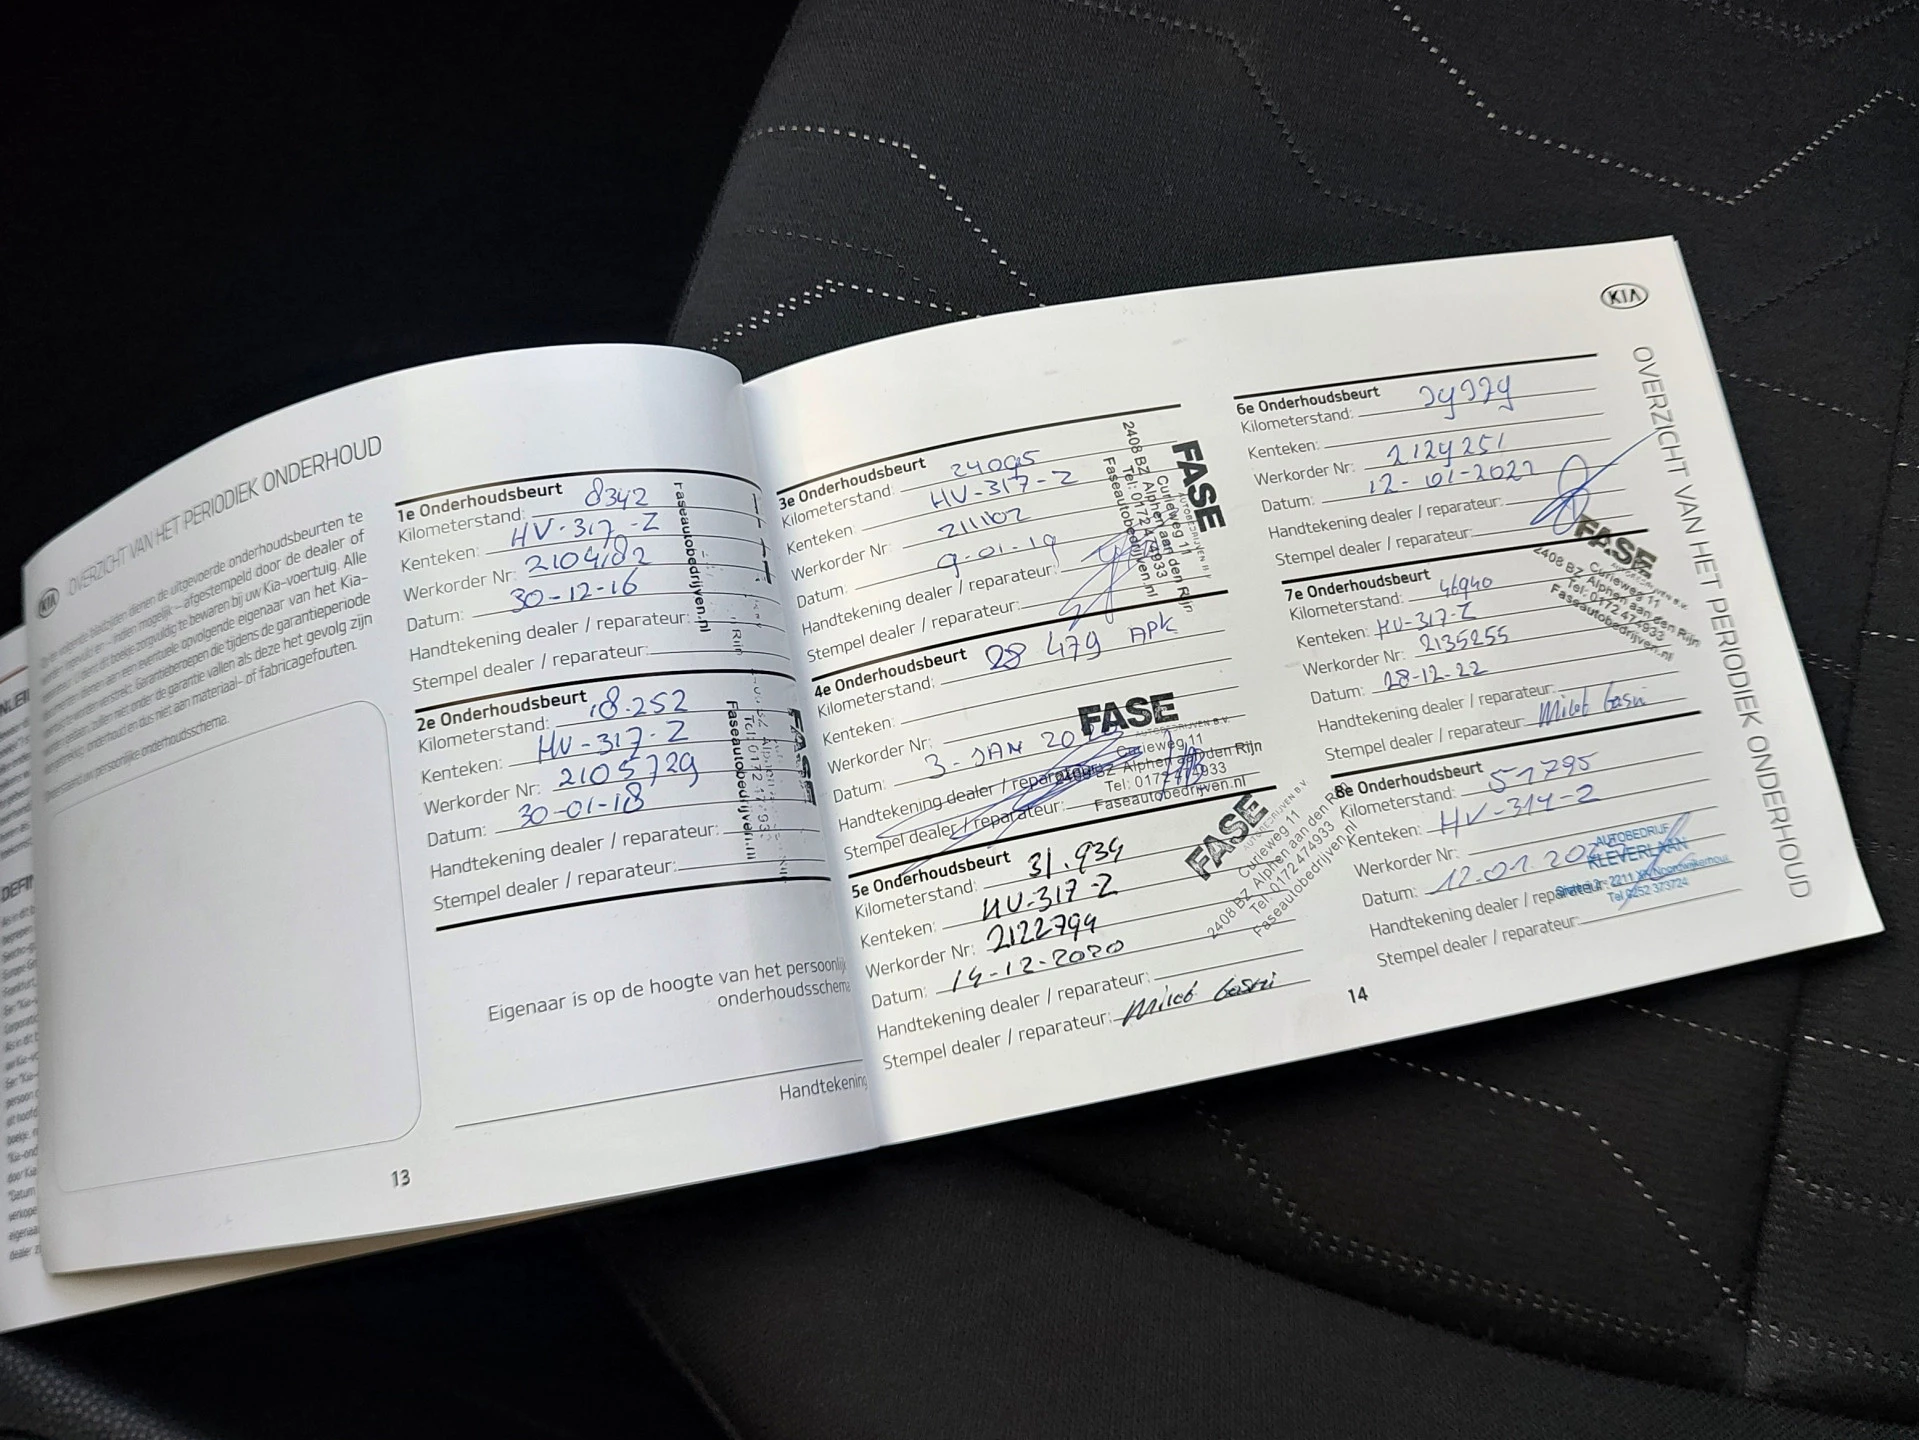 KIA
OVERZICHT VAN HET PERIODIEK ONDERHOUD
de volgende bladzijden dienen de uitgevoerde onderhoudsbeurten te
worden ingevuld en – indien mogelijk – afgestempeld door de dealer of
reparateur. U dient dit boekje zorgvuldig te bewaren bij uw Kia-voertuig. Alle
dienen aan een eventuele opvolgende eigenaar van het Kia-
voertuig te worden verstrekt. Garantieberoepen die tijdens de garantieperiode
worden gedaan, zullen niet onder de garantie vallen als deze het gevolg zijn
van gebrekkig onderhoud en dus niet aan materiaal- of fabricagefouten.
uw persoonlijke onderhoudsschema:
1e Onderhoudsbeurt
Kilometerstand: 8342
Kenteken: HV-317-Z
Werkorder Nr: 2104182
Datum: 30-12-16
Handtekening dealer / reparateur:
Stempel dealer / reparateur:
Faseautobedrijven.nl
2e Onderhoudsbeurt
Kilometerstand: 18.252
Kenteken: HV-317-Z
Werkorder Nr: 2105729
Datum: 30-01-18
Handtekening dealer / reparateur:
Stempel dealer / reparateur:
FASE
Faseautobedrijven.nl
Eigenaar is op de hoogte van het persoonlijk
onderhoudsschema
Handtekening
13
3e Onderhoudsbeurt
Kilometerstand: 24095
Kenteken: HV-317-Z
Werkorder Nr: 211102
Datum: 9-01-19
Handtekening dealer / reparateur:
Stempel dealer / reparateur:
FASE
AUTOBEDRIJVEN B.V.
Curieweg 11
2408 BZ Alphen aan den Rijn
Tel: 0172 474933
Faseautobedrijven.nl
4e Onderhoudsbeurt
Kilometerstand: 28 479 APK
Kenteken:
Werkorder Nr:
Datum: 3-JAN 20
Handtekening dealer / reparateur:
Stempel dealer / reparateur:
FASE
AUTOBEDRIJVEN B.V.
Curieweg 11
2408 BZ Alphen aan den Rijn
Tel: 0172 474933
Faseautobedrijven.nl
5e Onderhoudsbeurt
Kilometerstand: 31.934
Kenteken: HV-317-Z
Werkorder Nr: 2122794
Datum: 14-12-2020
Handtekening dealer / reparateur:
Stempel dealer / reparateur:
FASE
AUTOBEDRIJVEN B.V.
Curieweg 11
2408 BZ Alphen aan den Rijn
Tel: 0172 474933
Faseautobedrijven.nl
KIA
OVERZICHT VAN HET PERIODIEK ONDERHOUD
6e Onderhoudsbeurt
Kilometerstand:
Kenteken:
Werkorder Nr: 2124251
Datum: 12-01-2022
Handtekening dealer / reparateur:
Stempel dealer / reparateur:
FASE
AUTOBEDRIJVEN B.V.
Curieweg 11
2408 BZ Alphen aan den Rijn
Tel: 0172 474933
Faseautobedrijven.nl
7e Onderhoudsbeurt
Kilometerstand: 46940
Kenteken: HV-317-Z
Werkorder Nr: 2135255
Datum: 28-12-22
Handtekening dealer / reparateur:
Stempel dealer / reparateur:
8e Onderhoudsbeurt
Kilometerstand: 51795
Kenteken: HV-314-Z
Werkorder Nr:
Datum: 12.01.202
Handtekening dealer / reparateur:
Stempel dealer / reparateur:
AUTOBEDRIJF
KLEVERLAAN
Tel 0252 373724
14